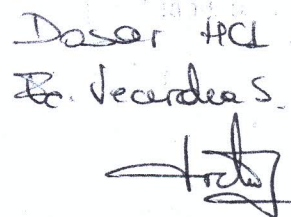 Dosar HCL
Ec. Vecerdea S.